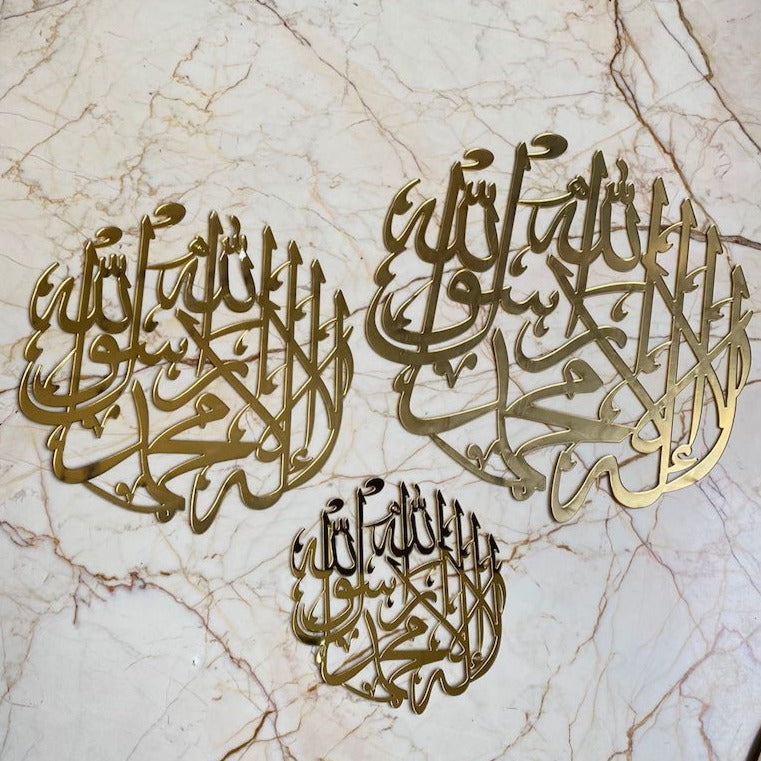 لا إله إلا الله محمد رسول الله
لا إله إلا الله محمد رسول الله
لا إله إلا الله محمد رسول الله